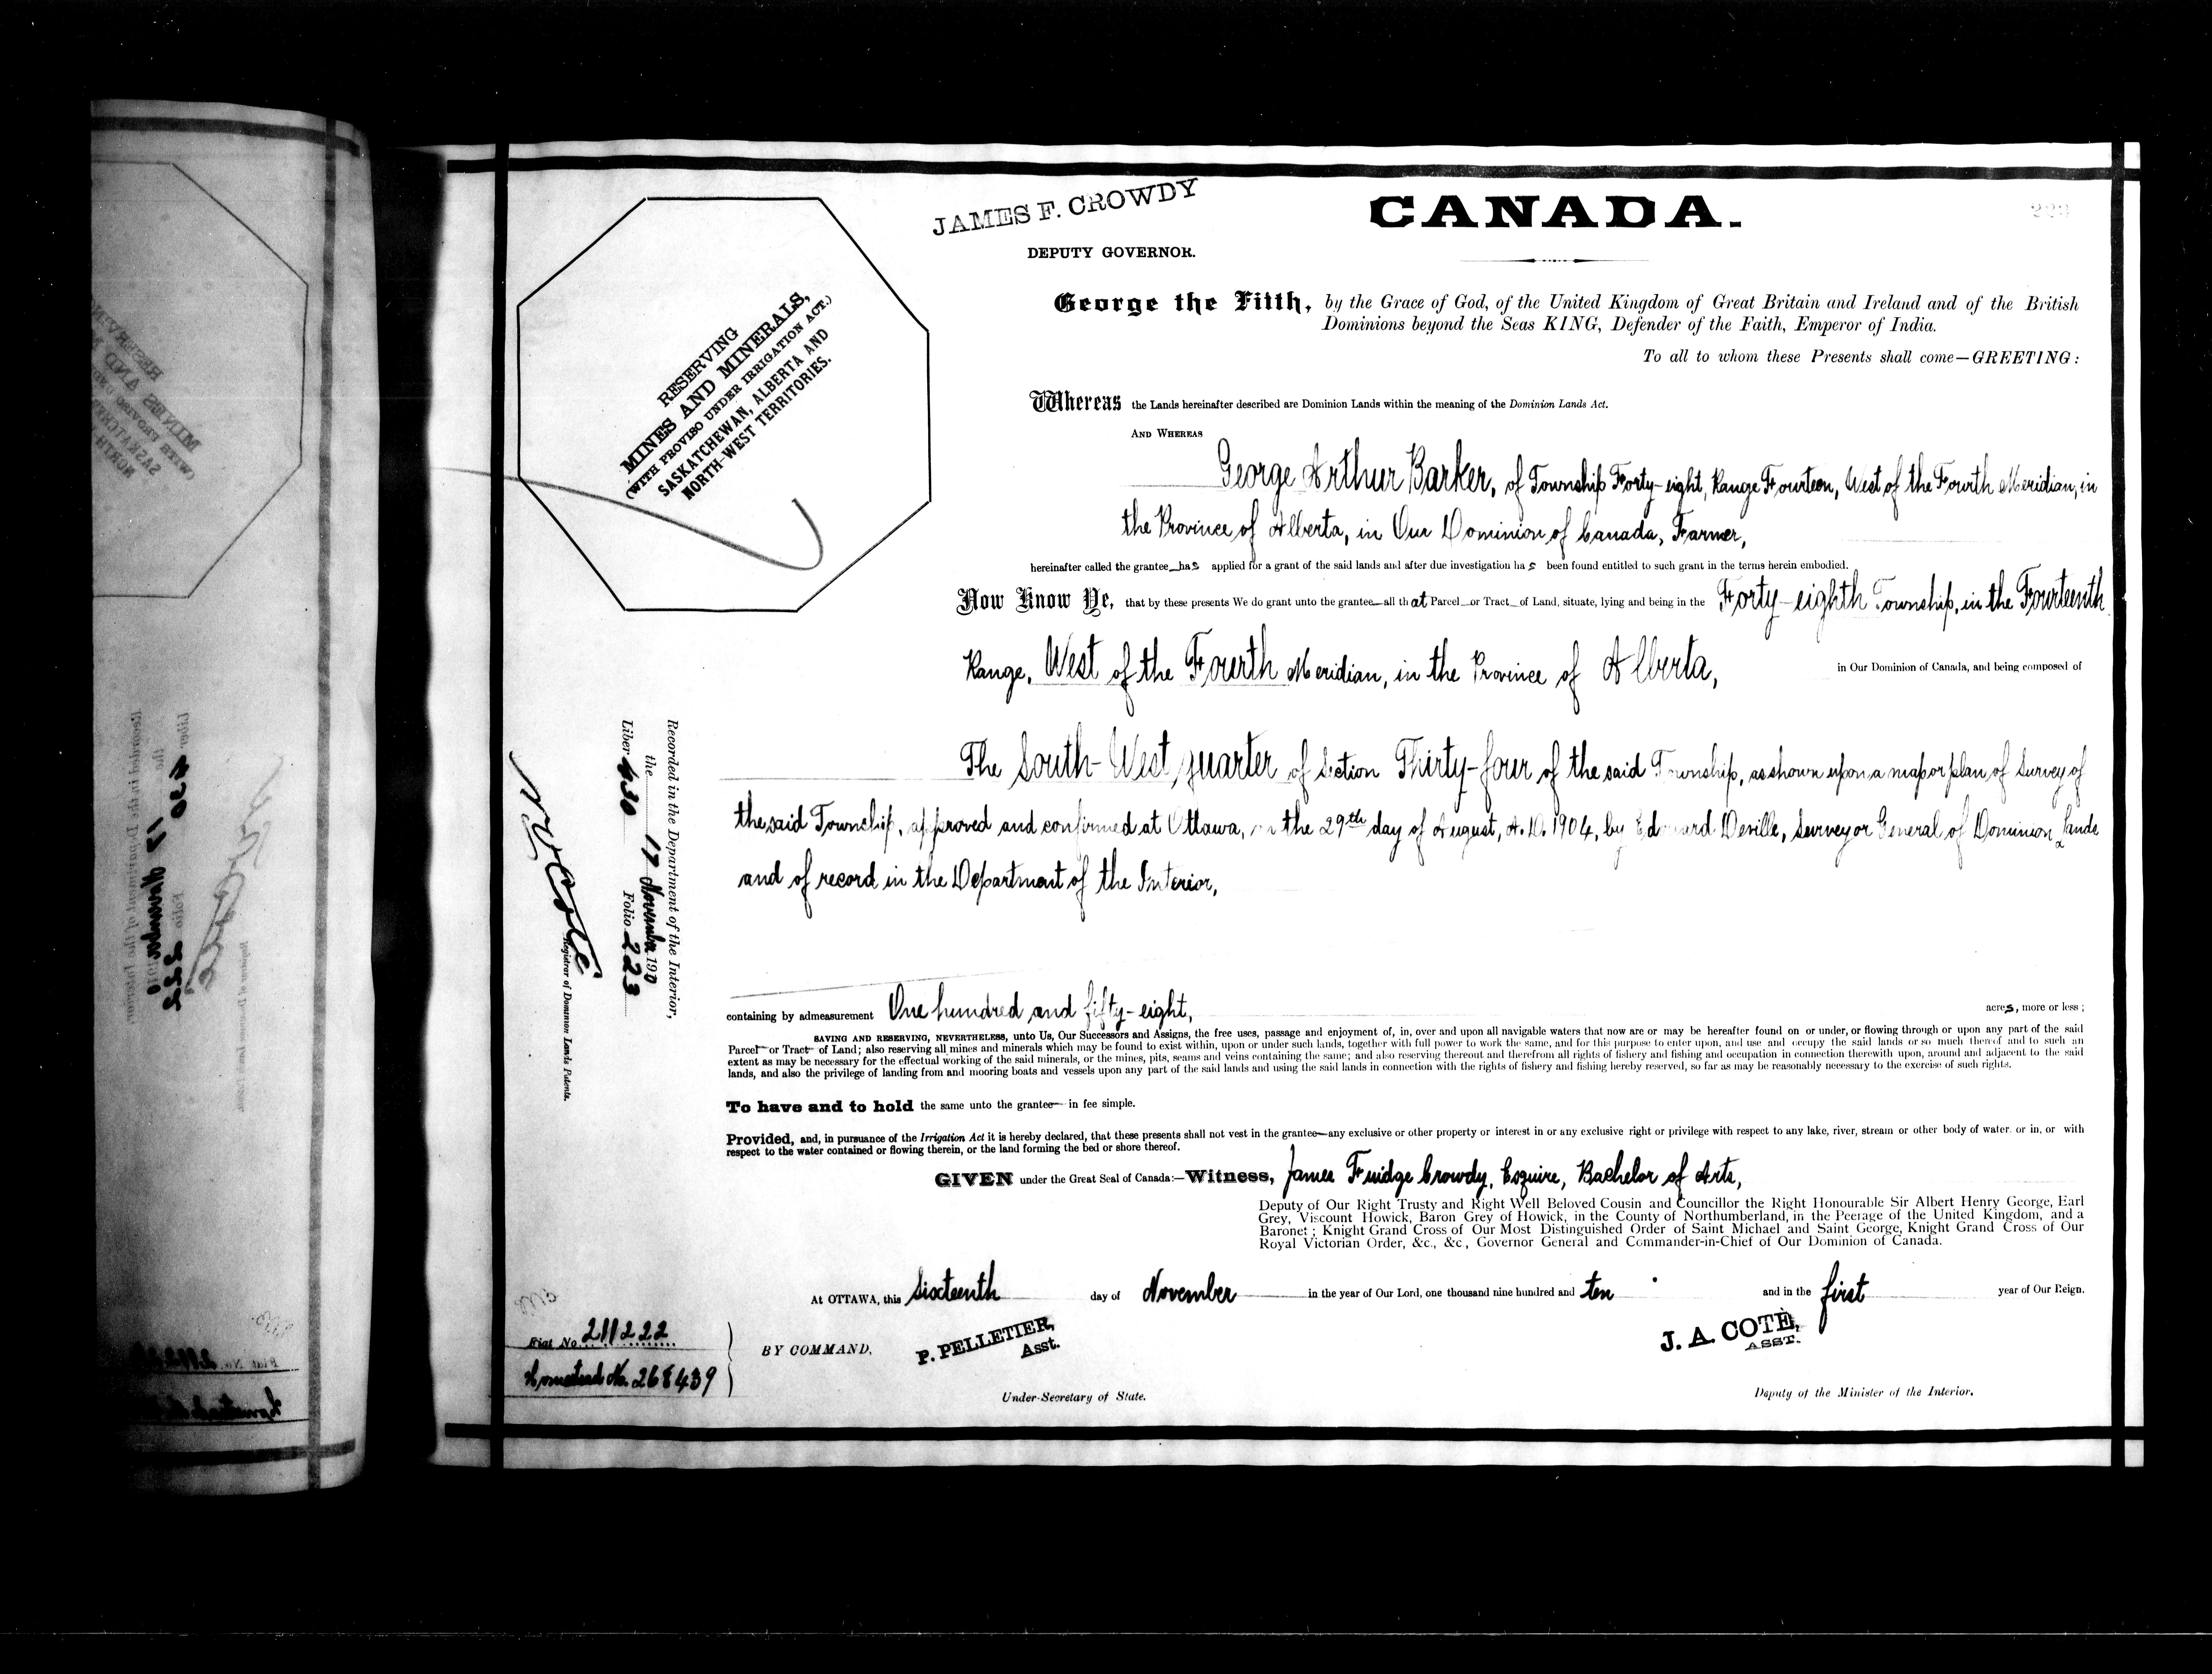 JAMES F. CROWDY
DEPUTY GOVERNOR.
CANADA.
223
RESERVING
MINES AND MINERALS,
(WITH PROVISO UNDER IRRIGATION ACT.)
SASKATCHEWAN, ALBERTA AND
NORTH-WEST TERRITORIES.
George the Fifth, by the Grace of God, of the United Kingdom of Great Britain and Ireland and of the British
Dominions beyond the Seas KING, Defender of the Faith, Emperor of India.
To all to whom these Presents shall come—GREETING:
Whereas the Lands hereinafter described are Dominion Lands within the meaning of the Dominion Lands Act.
AND WHEREAS
George Arthur Barker, of Township Forty-eight, Range Fourteen, West of the Fourth Meridian, in
the Province of Alberta, in Our Dominion of Canada, Farmer,
hereinafter called the grantee has applied for a grant of the said lands and after due investigation has been found entitled to such grant in the terms herein embodied.
Now Know Ye, that by these presents We do grant unto the grantee all that Parcel or Tract of Land, situate, lying and being in the Forty-eighth Township, in the Fourteenth
Range, West of the Fourth Meridian, in the Province of Alberta, in Our Dominion of Canada, and being composed of
The South-West quarter of Section Thirty-four of the said Township, as shown upon a map or plan of Survey of
the said Township, approved and confirmed at Ottawa, on the 29th day of August, A.D. 1904, by Edouard Deville, Surveyor General of Dominion Lands
and of record in the Department of the Interior,
containing by admeasurement One hundred and fifty-eight, acres, more or less;
SAVING AND RESERVING, NEVERTHELESS, unto Us, Our Successors and Assigns, the free uses, passage and enjoyment of, in, over and upon all navigable waters that now are or may be hereafter found on or under, or flowing through or upon any part of the said
Parcel or Tract of Land; also reserving all mines and minerals which may be found to exist within, upon or under such lands, together with full power to work the same, and for this purpose to enter upon, and use and occupy the said lands or so much thereof and to such an
extent as may be necessary for the effectual working of the said minerals, or the mines, pits, seams and veins containing the same; and also reserving thereout and therefrom all rights of fishery and fishing and occupation in connection therewith upon, around and adjacent to the said
lands, and also the privilege of landing from and mooring boats and vessels upon any part of the said lands and using the said lands in connection with the rights of fishery and fishing hereby reserved, so far as may be reasonably necessary to the exercise of such rights.
To have and to hold the same unto the grantee in fee simple.
Provided, and, in pursuance of the Irrigation Act it is hereby declared, that these presents shall not vest in the grantee any exclusive or other property or interest in or any exclusive right or privilege with respect to any lake, river, stream or other body of water, or in, or with
respect to the water contained or flowing therein, or the land forming the bed or shore thereof.
GIVEN under the Great Seal of Canada:—Witness, James Fuidge Crowdy, Esquire, Bachelor of Arts,
Deputy of Our Right Trusty and Right Well Beloved Cousin and Councillor the Right Honourable Sir Albert Henry George, Earl
Grey, Viscount Howick, Baron Grey of Howick, in the County of Northumberland, in the Peerage of the United Kingdom, and a
Baronet; Knight Grand Cross of Our Most Distinguished Order of Saint Michael and Saint George, Knight Grand Cross of Our
Royal Victorian Order, &c., &c., Governor General and Commander-in-Chief of Our Dominion of Canada.
At OTTAWA, this Sixteenth day of November in the year of Our Lord, one thousand nine hundred and ten and in the first year of Our Reign.
BY COMMAND,
P. PELLETIER,
Asst.
Under-Secretary of State.
J. A. COTÈ,
ASST.
Deputy of the Minister of the Interior.
Recorded in the Department of the Interior,
the 17 November 1910
Liber 430 Folio 223
N O Coté
Registrar of Dominion Lands Patents.
Fiat No. 211222
Homestead No. 268439